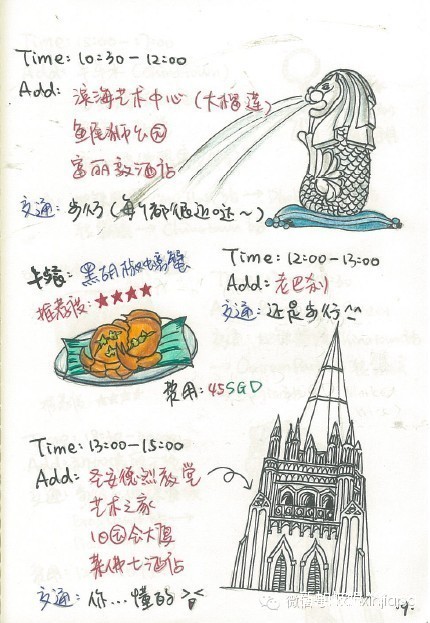 Time: 10:30-12:00
Add: 滨海艺术中心 (大榴莲)
鱼尾狮公园
富丽敦酒店
交通: 步行 (每个都很近哒~)
Time: 12:00-13:00
Add: 老巴刹
交通: 还是步行 ^^
黑胡椒螃蟹
推荐 ★★★★
费用: 45SGD
Time: 13:00-15:00
Add: 圣安德烈教堂
艺术之家
旧国会大厦
莱佛士酒店
交通: 你...懂的 ><
微信号: